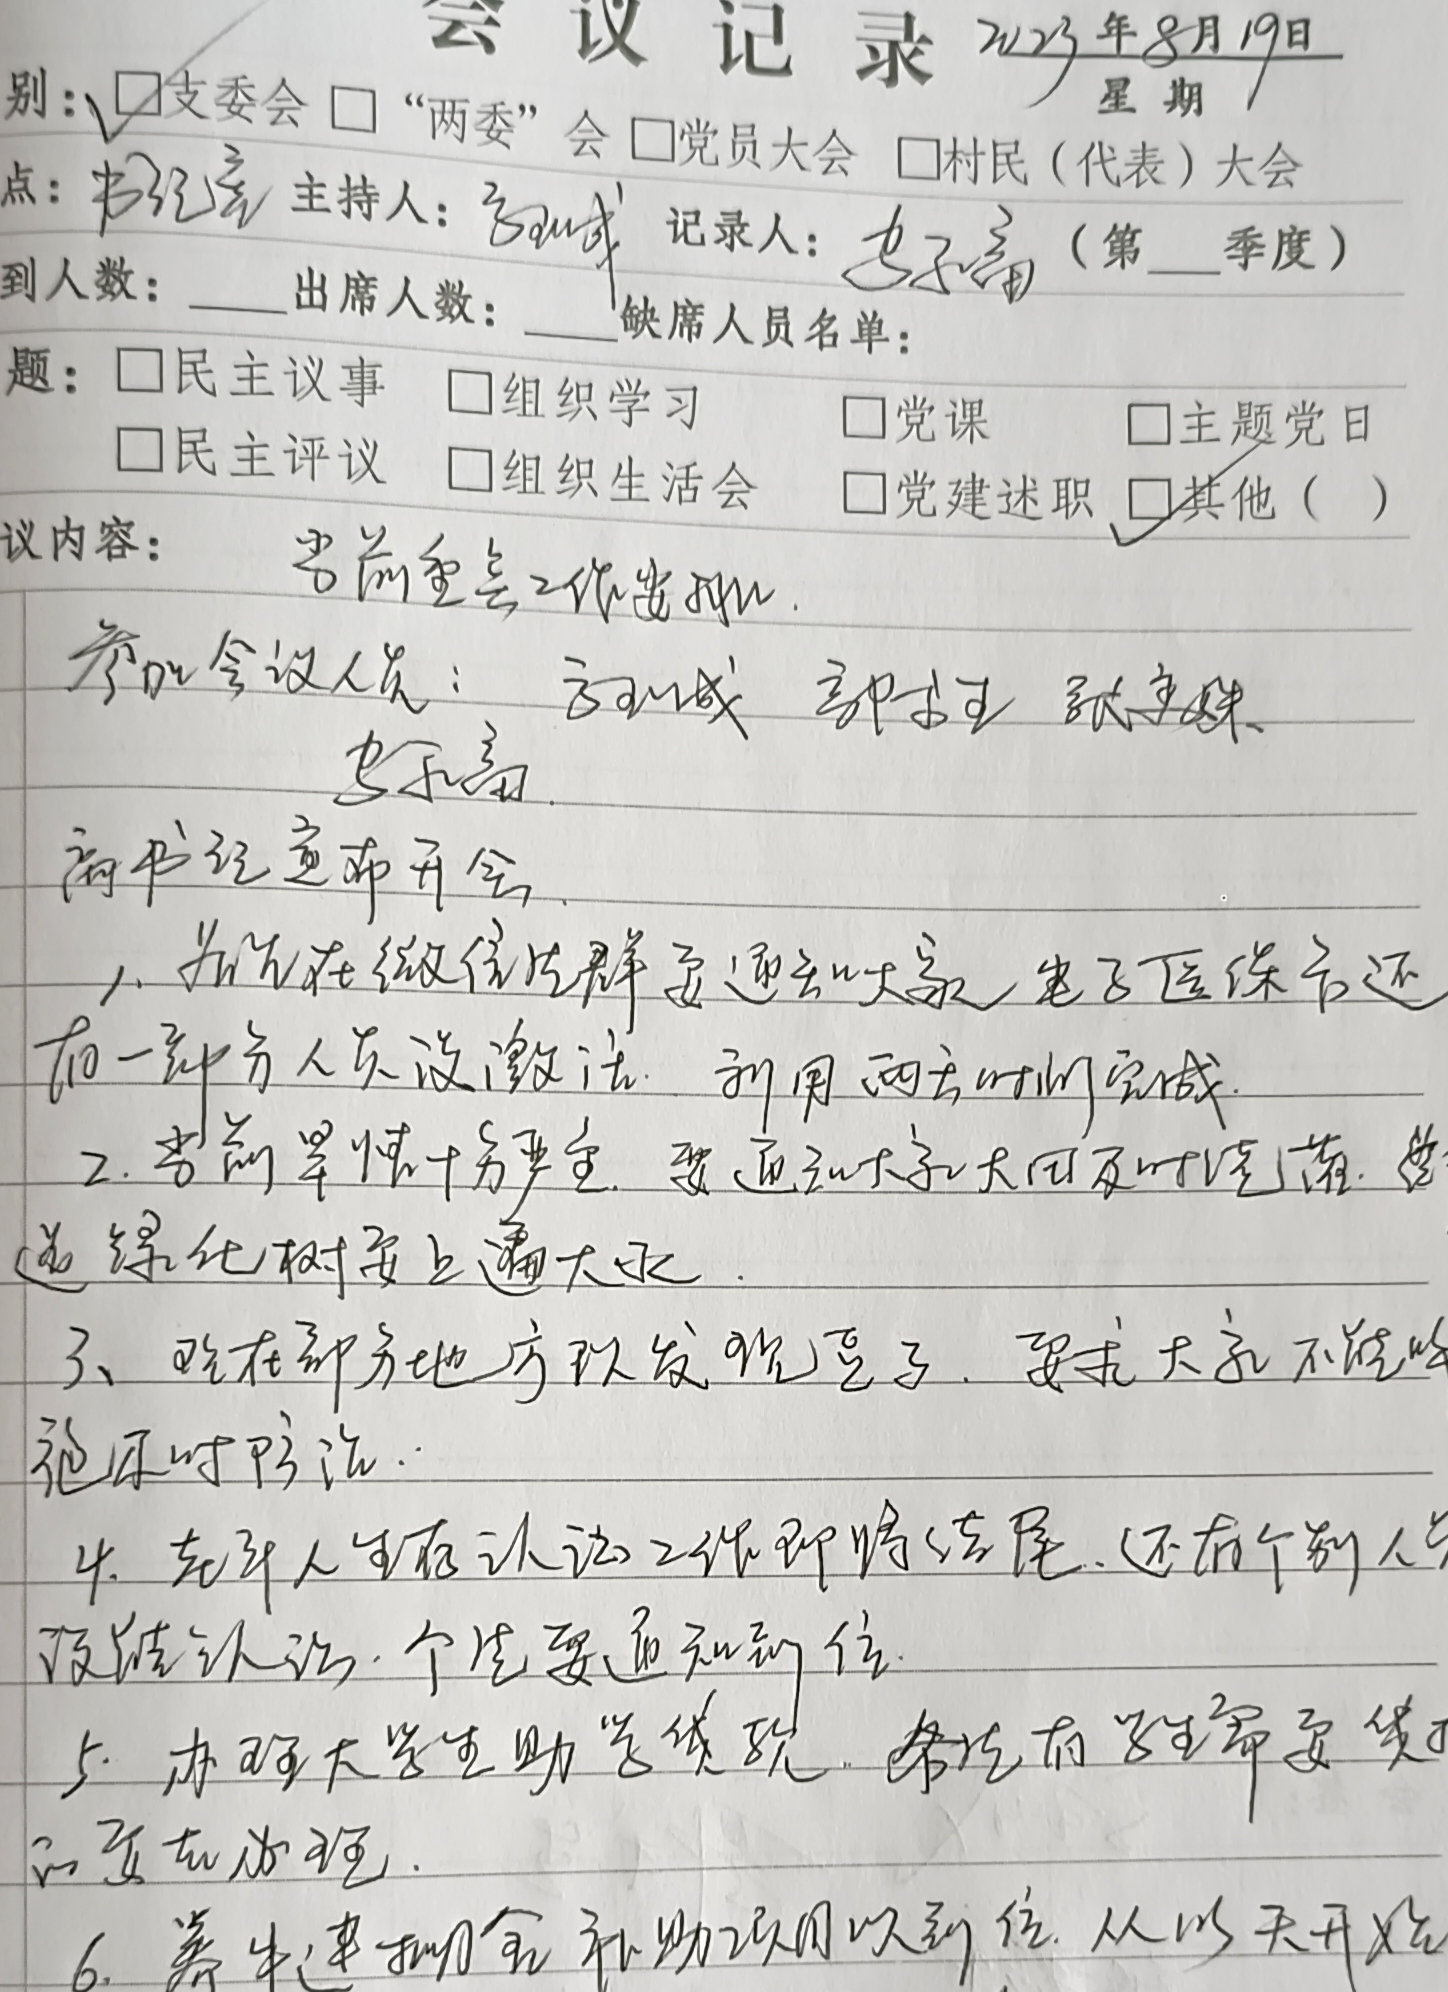 会议记录 2023年8月19日
星期
别：□支委会 □“两委”会 □党员大会 □村民（代表）大会
点：书记室 主持人： 记录人： （第___季度）
到人数：____出席人数：____缺席人员名单：
题：□民主议事 □组织学习 □党课 □主题党日
□民主评议 □组织生活会 □党建述职 □其他（ ）
议内容： 当前重点工作安排.
参加会议人员：
书记宣布开会.
1、首先在微信群要通知大家电子医保卡还
有一部分人员没激活.利用两天时间完成.
2.当前旱情十分严重.要通知大家大田及时浇灌.
绿化树要上遍大水.
3、现在部分地方以发现豆子.要求大家不能
及时防治.
4.老年人生存认证工作即将结尾.还有个别人员
没能认证.个位要通知到位.
5.办理大学生助学贷款..各位有学生需要贷
的要去办理.
6.养牛建棚金补助项目以到位.从以天开始